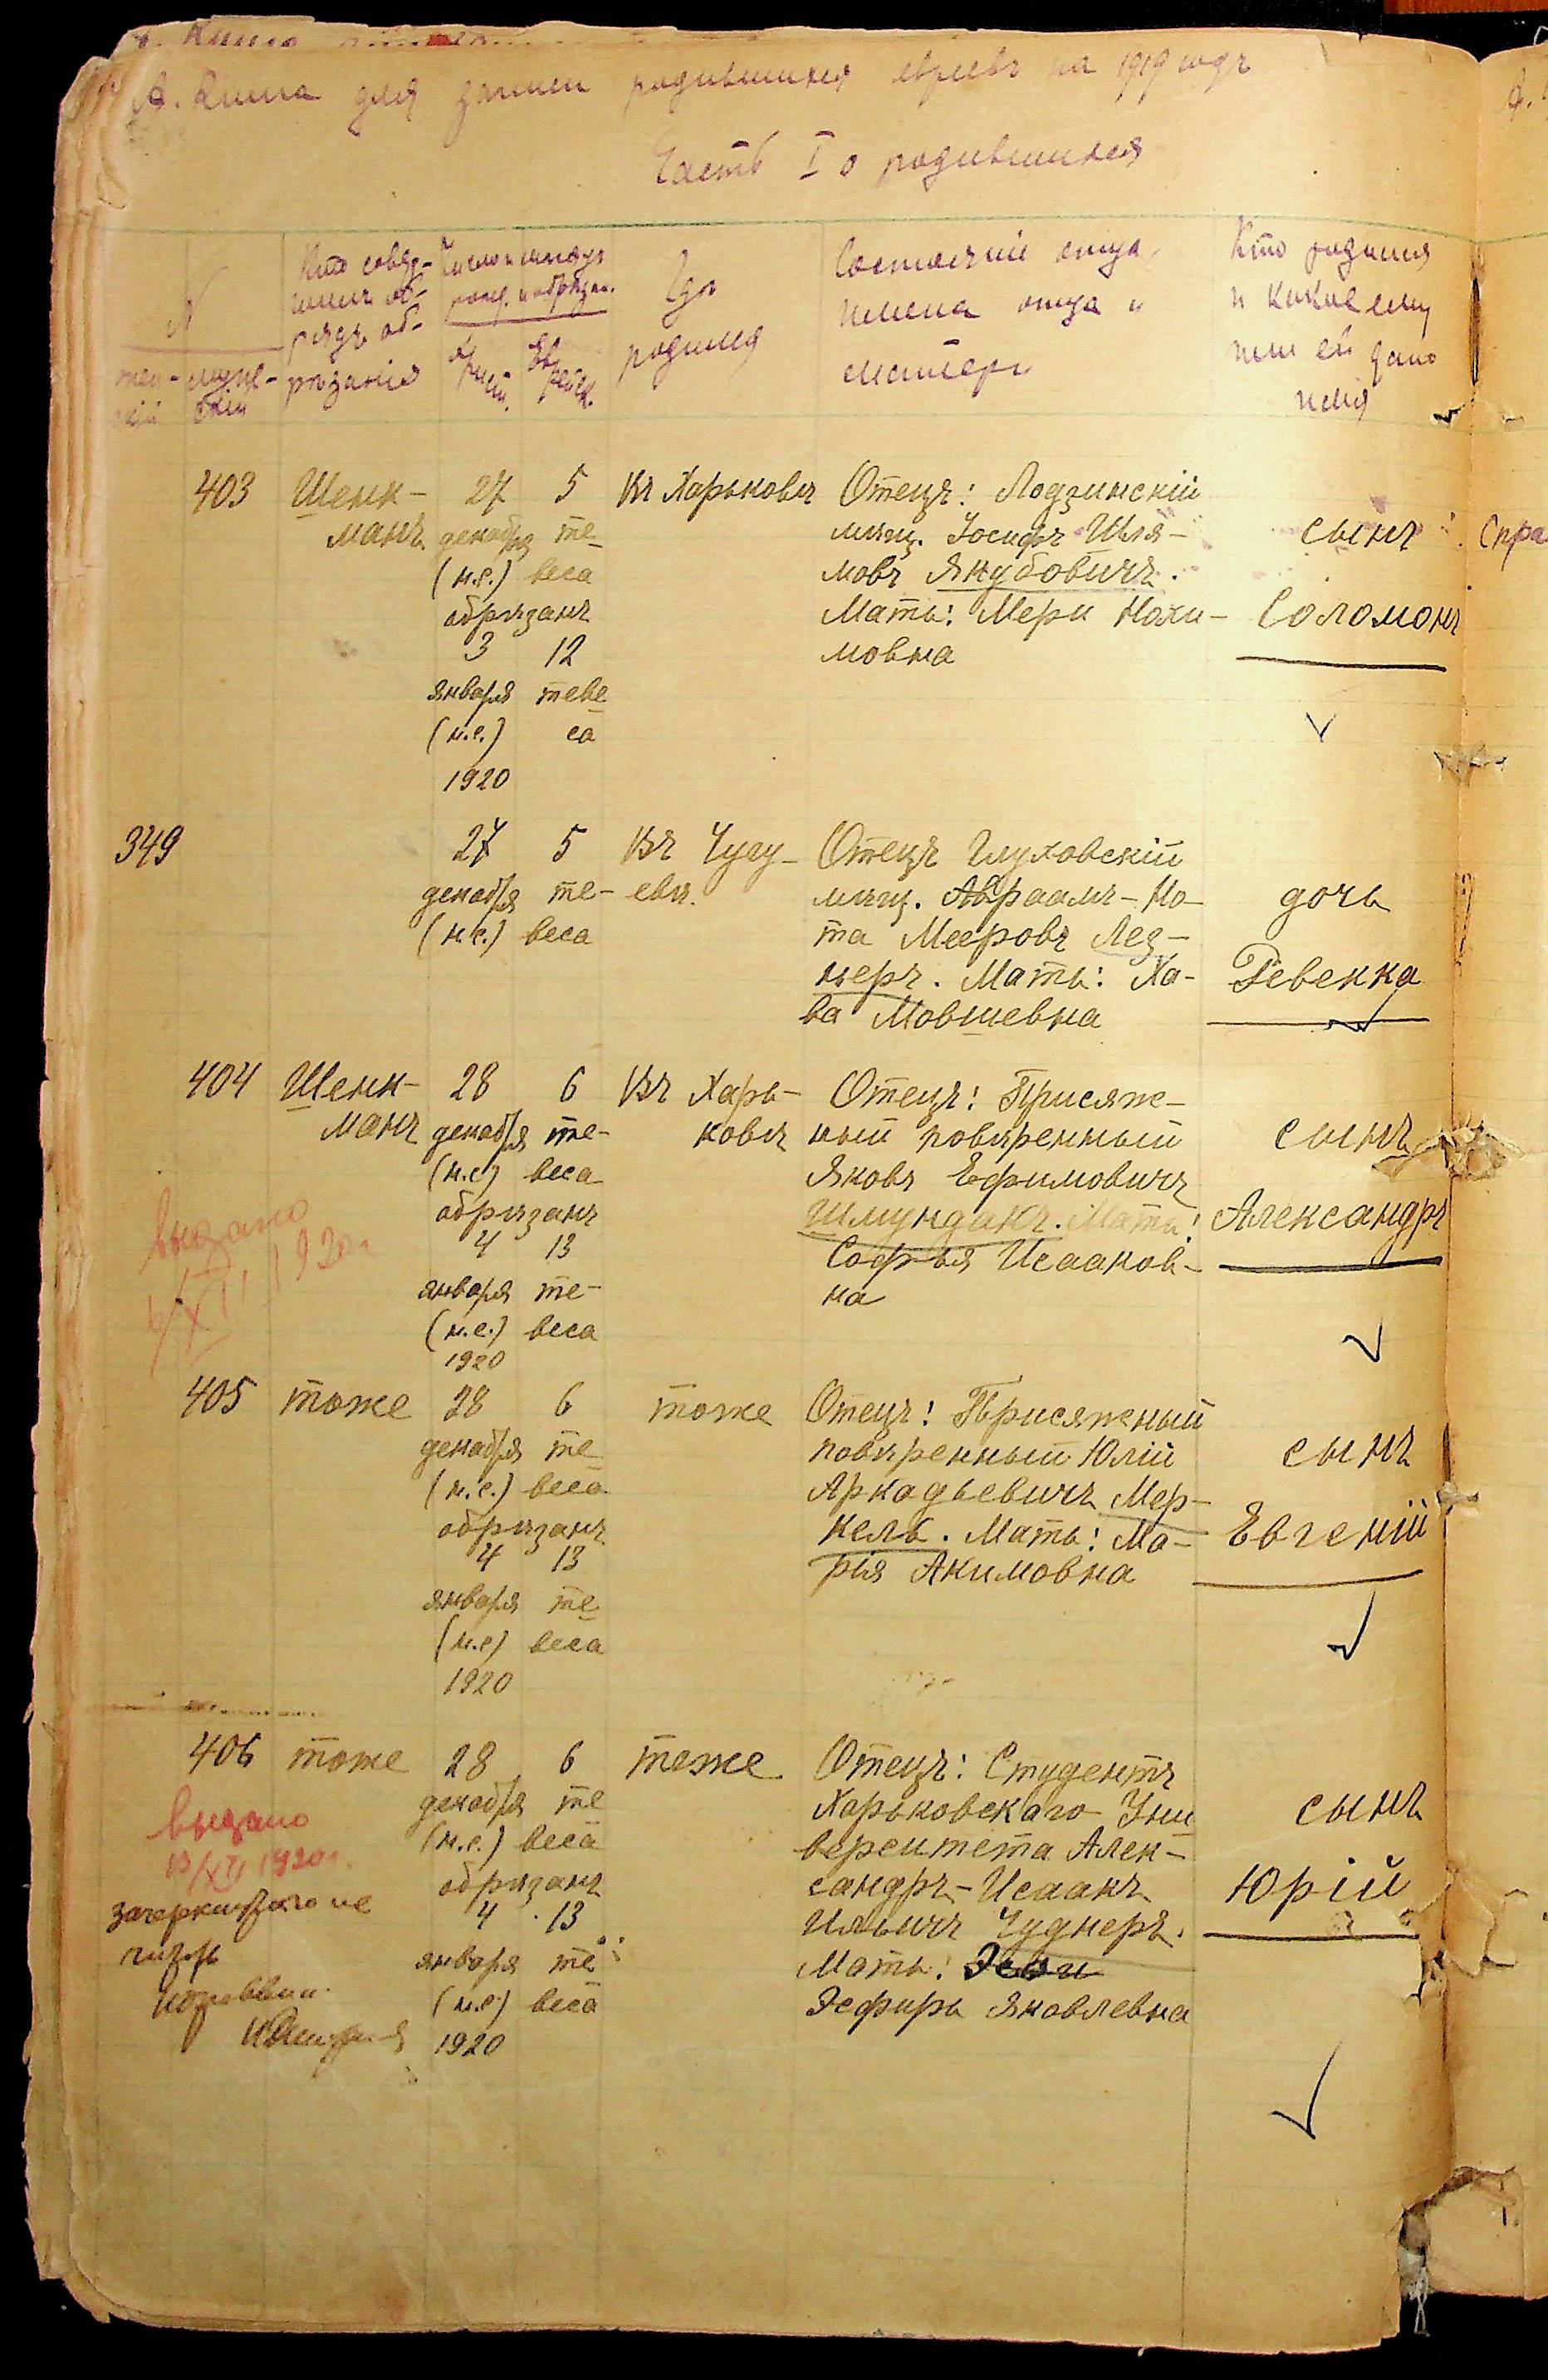 А. Книга для записи родившихся евреевъ на 1919 годъ
Часть I о родившихся
№
жен-
скій
муже-
скій
Кто совер-
шилъ об-
рядъ об-
рѣзанія
Число и мѣсяцъ
рожд. и обрѣзан.
Хрисш.
Еврейск.
Гдѣ
родился
Состояніе отца,
имена отца и
матери
Кто родился
и какое ему
или ей дано
имя
403
Шенк-
манъ
27
декабря
(н.с.)
обрѣзанъ
3
января
(н.с.)
1920
5
те-
веса
12
теве-
са
Въ Харьковѣ
Отецъ: Лодзинскій
мѣщ. Іосифъ Шля-
мовъ Якубовичъ.
Мать: Мери Нохи-
мовна
сынъ
Соломонъ
349
27
декабря
(н.с.)
5
те-
веса
Въ Чугу-
евѣ.
Отецъ Глуховскій
мѣщ. Авраамъ-Но-
та Мееровъ Лез-
неръ. Мать: Ха-
ва Мовшевна
дочь
Ревекка
404
Шенк-
манъ
28
декабря
(н.с)
обрѣзанъ
4
января
(н.с.)
1920
6
те-
веса
13
те-
веса
Въ Харь-
ковѣ
Отецъ: Присяж-
ный повѣренный
Яковъ Ефимовичъ
Шмундакъ. Мать:
Софья Исааков-
на
сынъ
Александръ
выдано
6/XII 1920г
405
тоже
28
декабря
(н.с.)
обрѣзанъ
4
января
(н.с)
1920
6
те
веса
13
те
веса
тоже
Отецъ: Присяжный
повѣренный Юлій
Аркадьевичъ Мер-
кель. Мать: Ма-
рія Акимовна
сынъ
Евгеній
406
тоже
28
декабря
(н.с.)
обрѣзанъ
4
января
(н.с.)
1920
6
те
веса
13
те
веса
тоже
Отецъ: Студентъ
Харьковскаго Уни
верситета Алек-
сандръ-Исаакъ
Ильичъ Чуднеръ.
Мать:
Эсфирь Яковлевна
сынъ
Юрій
выдано
13/XII 1920г.
зачеркнутаго не
читать
Спра